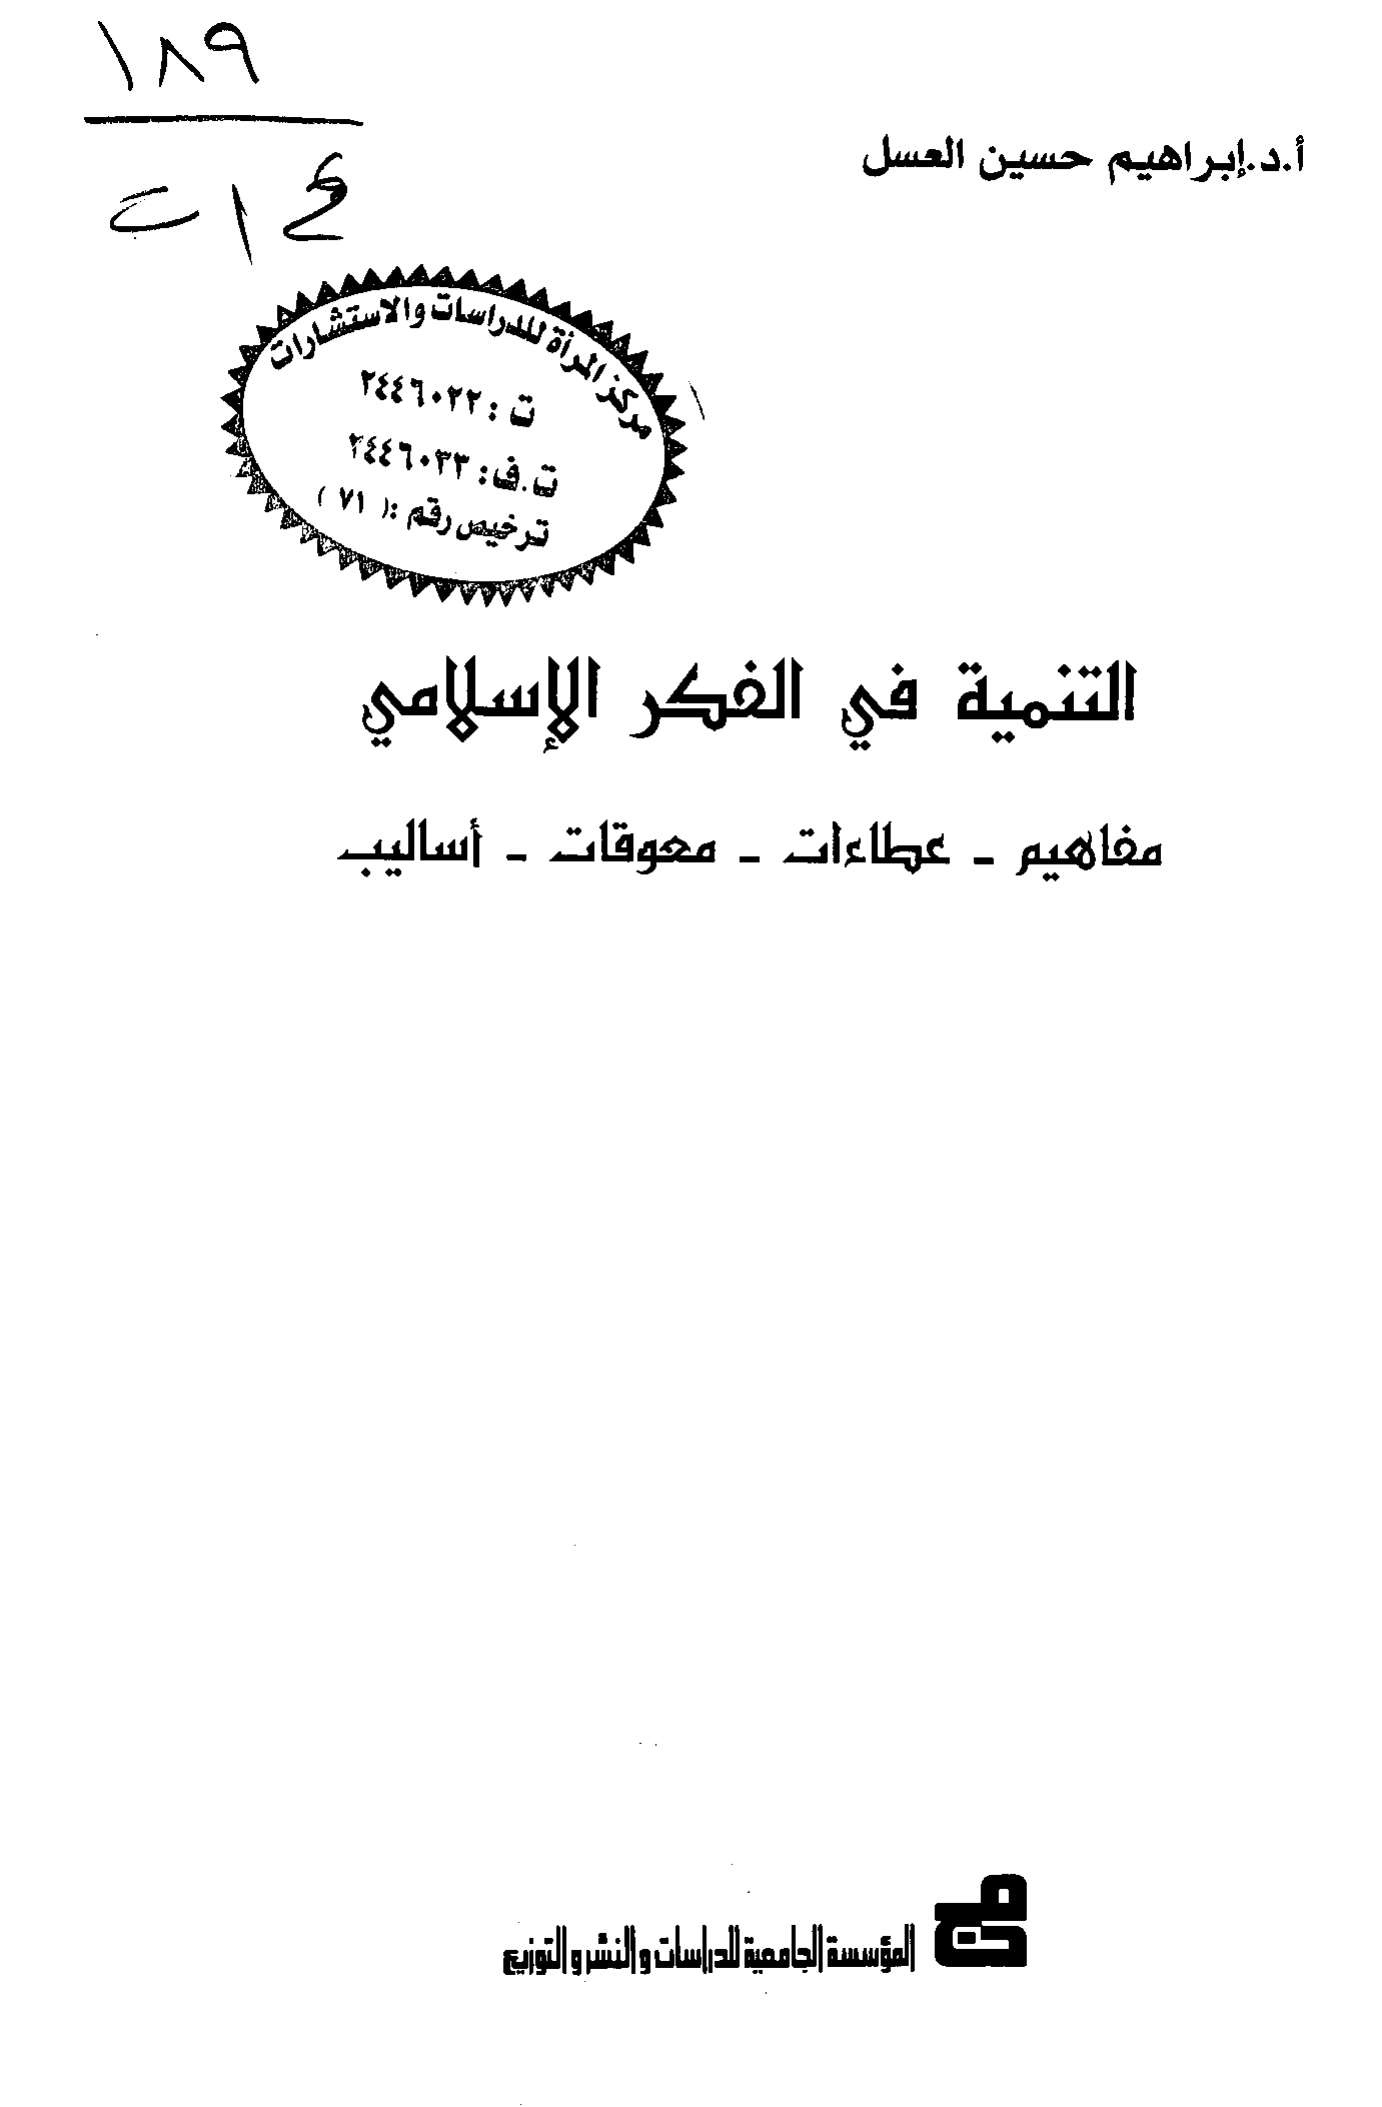 ١٨٩
أ.د.إبراهيم حسين العسل
مركز المرأة للدراسات والاستشارات
ت : ٢٤٤٦٠٢٢
ت.ف: ٢٤٤٦٠٣٣
ترخيص رقم :( ٧١ )
التنمية في الفكر الإسلامي
مفاهيم - عطاءات - معوقات - أساليب
المؤسسة الجامعية للدراسات والنشر والتوزيع